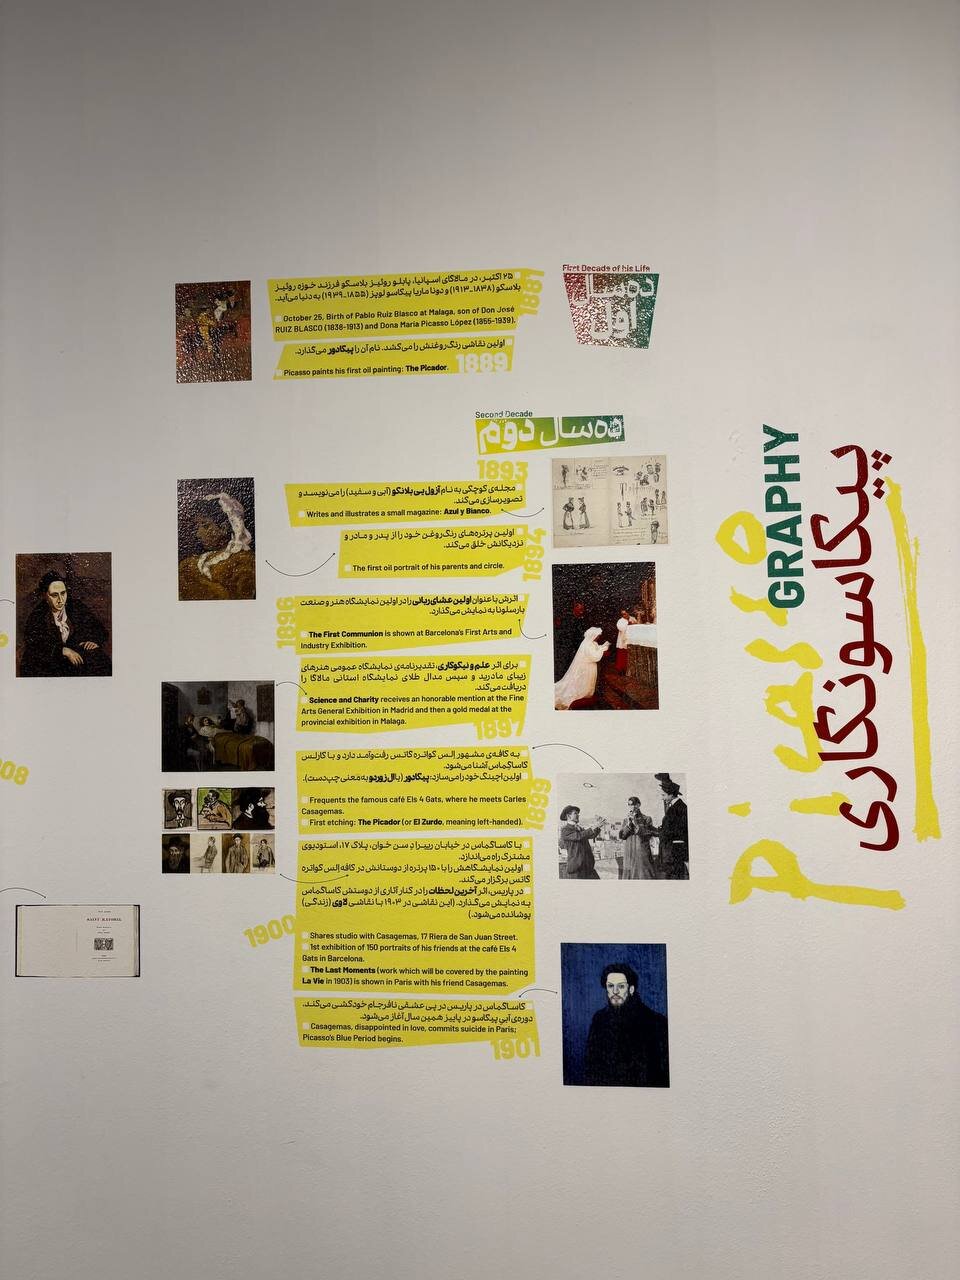 picasso
GRAPHY
پیکاسونگاری
First Decade of his Life
ده‌سال
اول
1881
۲۵ اکتبر، در مالاگای اسپانیا، پابلو روئیز بلاسکو فرزند خوزه روئیز
بلاسکو (۱۸۳۸-۱۹۱۳) و دونا ماریا پیکاسو لوپز (۱۸۵۵-۱۹۳۹) به دنیا می‌آید.
October 25, Birth of Pablo Ruiz Blasco at Malaga, son of Don José
RUIZ BLASCO (1838-1913) and Dona Maria Picasso López (1855-1939).
اولین نقاشی رنگ‌روغنش را می‌کشد. نام آن را پیکادور می‌گذارد.
Picasso paints his first oil painting: The Picador.
1889
Second Decade
ده‌سال دوم
1893
مجله‌ی کوچکی به نام آزول یی بلانکو (آبی و سفید) را می‌نویسد و
تصویرسازی می‌کند.
Writes and illustrates a small magazine: Azul y Bianco.
1894
اولین پرتره‌های رنگ‌روغن خود را از پدر و مادر و
نزدیکانش خلق می‌کند.
The first oil portrait of his parents and circle.
1896
اثرش با عنوان اولین عشای ربانی را در اولین نمایشگاه هنر و صنعت
بارسلونا به نمایش می‌گذارد.
The First Communion is shown at Barcelona's First Arts and
Industry Exhibition.
برای اثر علم و نیکوکاری، تقدیرنامه‌ی نمایشگاه عمومی هنرهای
زیبای مادرید و سپس مدال طلای نمایشگاه استانی مالاگا را
دریافت می‌کند.
Science and Charity receives an honorable mention at the Fine
Arts General Exhibition in Madrid and then a gold medal at the
provincial exhibition in Malaga.
1897
به کافه‌ی مشهور اِلس کواتره گاتس رفت‌وآمد دارد و با کارلس
کاساگِماس آشنا می‌شود.
اولین اچینگ خود را می‌سازد: پیکادور (یا ال زوردو به معنی چپ‌دست).
1899
Frequents the famous café Els 4 Gats, where he meets Carles
Casagemas.
First etching: The Picador (or El Zurdo, meaning left-handed).
با کاساگماس در خیابان رییرا دِ سن خوان، پلاک ۱۷، استودیوی
مشترک راه می‌اندازد.
اولین نمایشگاهش را با ۱۵۰ پرتره از دوستانش در کافه اِلس کواتره
گاتس برگزار می‌کند.
در پاریس، اثر آخرین لحظات را در کنار آثاری از دوستش کاساگماس
به نمایش می‌گذارد. (این نقاشی در ۱۹۰۳ با نقاشی لاوی (زندگی)
پوشانده می‌شود.)
1900
Shares studio with Casagemas, 17 Riera de San Juan Street.
1st exhibition of 150 portraits of his friends at the café Els 4
Gats in Barcelona.
The Last Moments (work which will be covered by the painting
La Vie in 1903) is shown in Paris with his friend Casagemas.
کاساگماس در پاریس در پی عشقی نافرجام خودکشی می‌کند.
دوره‌ی آبی پیکاسو در پاییز همین سال آغاز می‌شود.
Casagemas, disappointed in love, commits suicide in Paris;
Picasso's Blue Period begins.
1901
908
SAINT MATOREL